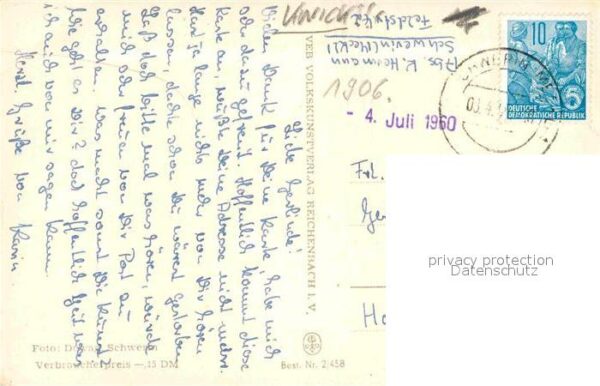 Liebe Gerlinde!
Vielen Dank für Deine Karte, habe mich
sehr dazu gefreut. Hoffentlich kommt diese
Karte an, wußte Deine Adresse nicht mehr.
Hast ja lange nichts mehr von Dir hören
lassen, dachte schon Du wärest gestorben.
Laß doch bitte mal was hören, würde
mich sehr freuen von Dir Post zu
erhalten. Was macht sonst Die Kunst?
Wie geht es Dir? doch hoffentlich
ich auch von mir sagen kann.
Herzl. Grüße von Karin
VEB VOLKSKUNSTVERLAG REICHENBACH I. V.
Foto: Schwerin
Verbraucherpreis —,15 DM
Best. Nr. 2/458
Abs. K. Hermann
Schwerin (Meckl)
Feldstr.
1906.
- 4. Juli 1960
10
DEUTSCHE
DEMOKRATISCHE REPUBLIK
5
SCHWERIN
Frl.
Ge
Ha
privacy protection
Datenschutz